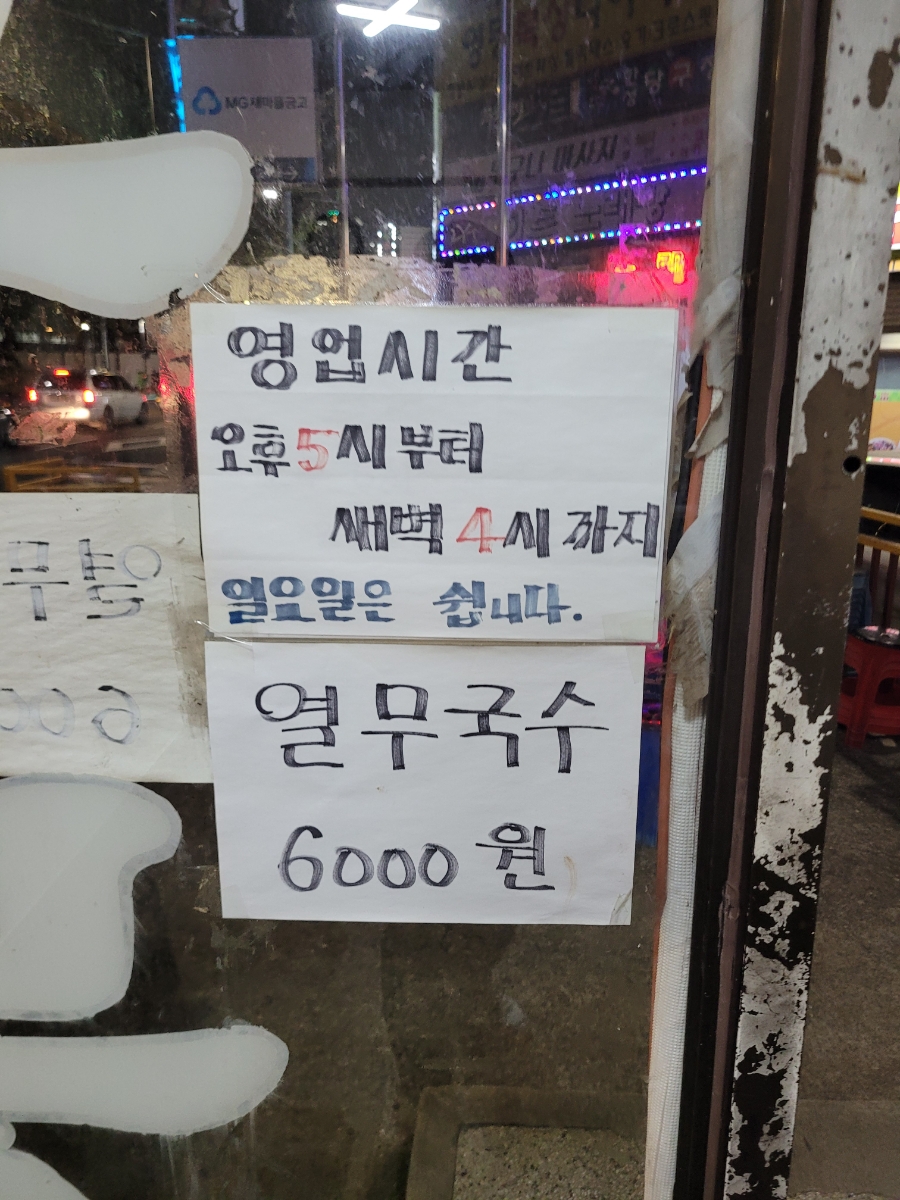 MG새마을금고
영업시간
오후5시부터
새벽4시까지
일요일은 쉽니다.
열무국수
6000원